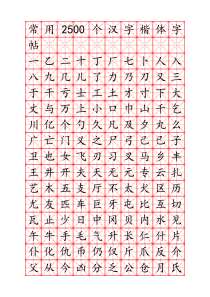 常用2500个汉字楷体字
帖
一乙二十丁厂七卜人入
八九几儿了力乃刀又三
于干亏士工土才寸下大
丈与万上小口巾山千乞
川亿个勺久凡及夕丸么
广亡门义之尸弓己已子
卫也女飞刃习叉马乡丰
王井开夫天无元专云扎
艺木五支厅不太犬区历
尤友匹车巨牙屯比互切
瓦止少日中冈贝内水见
午牛手毛气升长仁什片
仆化仇币仍仅斤爪反介
父从今凶分乏公仓月氏